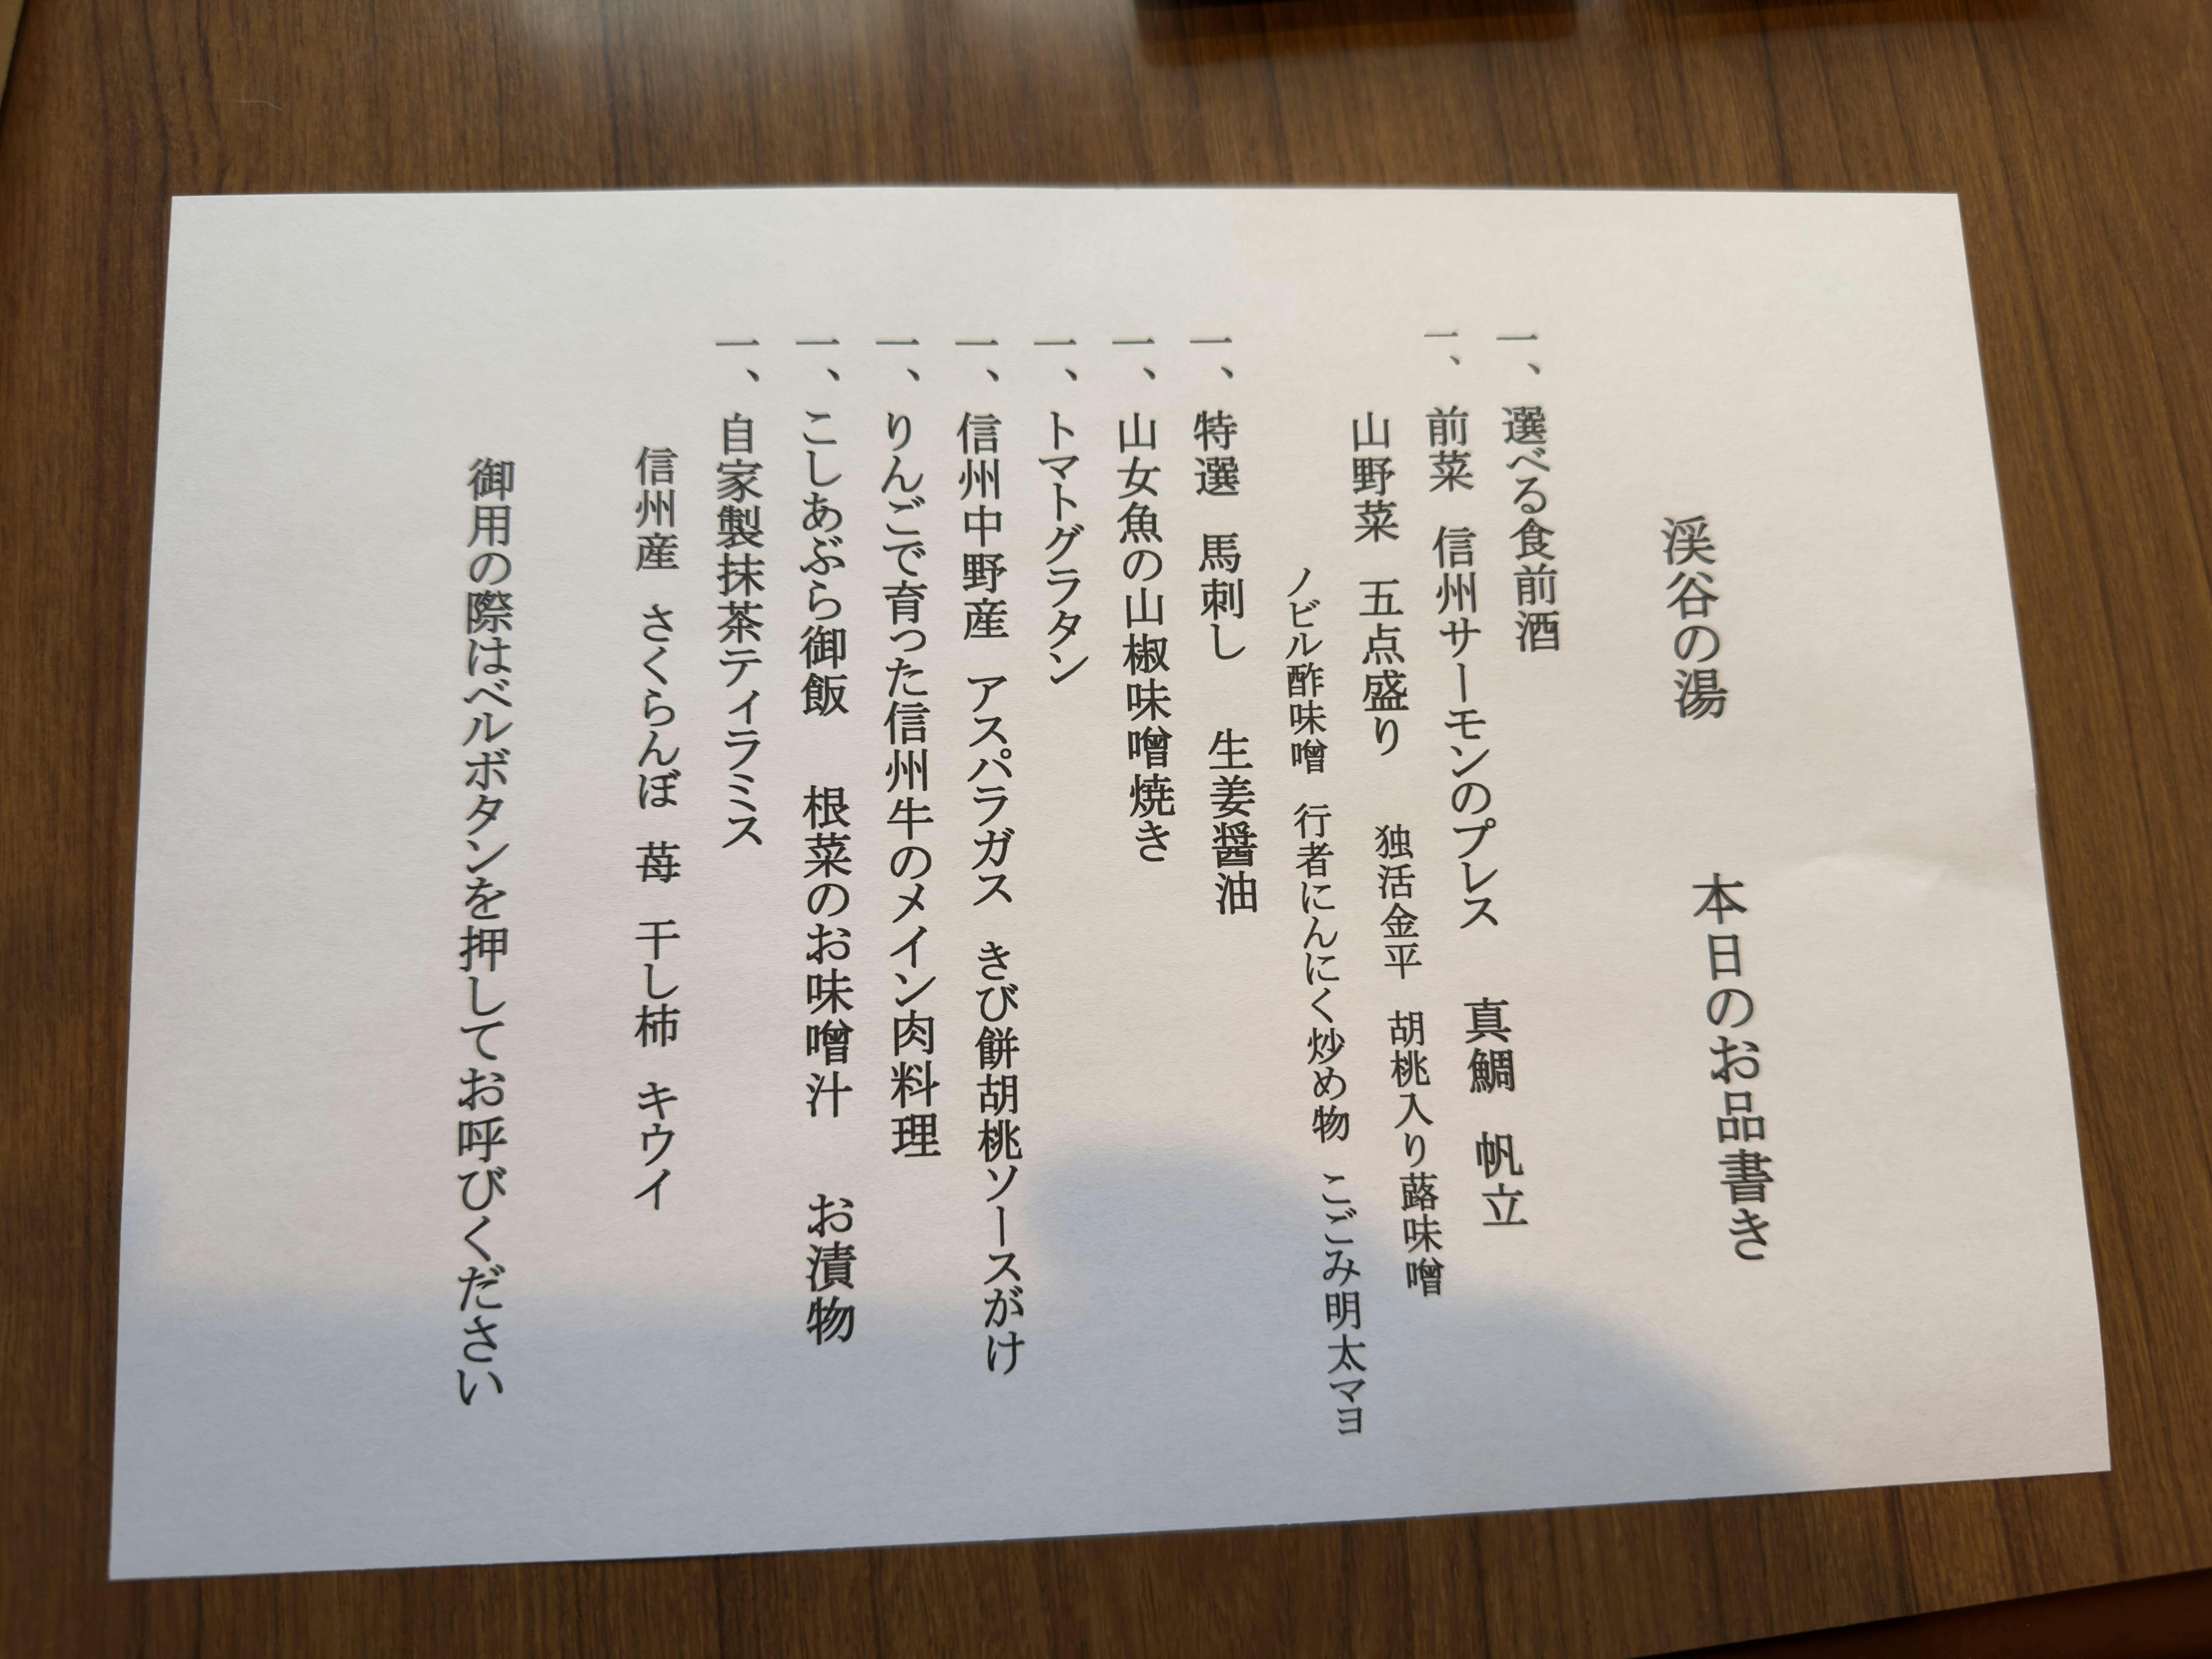 渓谷の湯　本日のお品書き
一、選べる食前酒
一、前菜　信州サーモンのプレス　真鯛　帆立
山野菜　五点盛り　独活金平　胡桃入り蕗味噌
ノビル酢味噌　行者にんにく炒め物　こごみ明太マヨ
一、特選　馬刺し　生姜醤油
一、山女魚の山椒味噌焼き
一、トマトグラタン
一、信州中野産　アスパラガス　きび餅胡桃ソースがけ
一、りんごで育った信州牛のメイン肉料理
一、こしあぶら御飯　根菜のお味噌汁　お漬物
一、自家製抹茶ティラミス
信州産　さくらんぼ　苺　干し柿　キウイ
御用の際はベルボタンを押してお呼びください